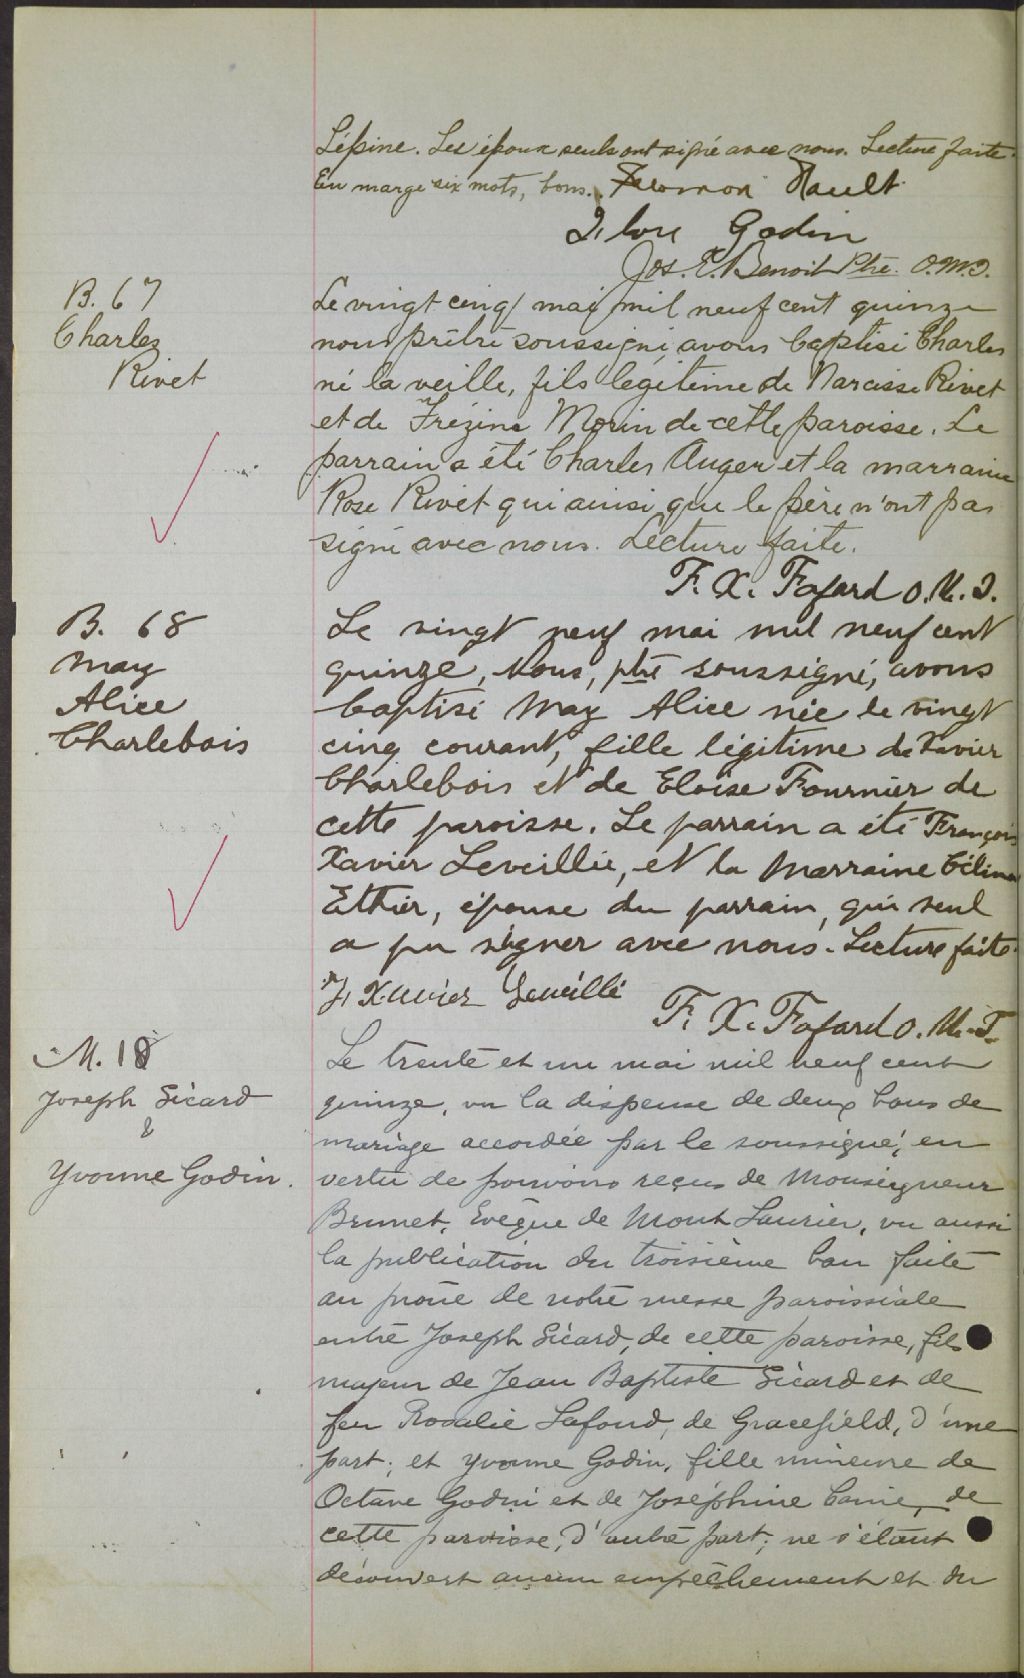 Lépine. Les époux seuls ont signé avec nous. Lecture faite.
En marge six mots, bons. Hault
Flore Godin
Jos. E. Benoit Ptre. O.M.I.
B. 67
Charles
Rivet
Le vingt cinq mai mil neuf cent quinze
nous prêtre soussigné avons baptisé Charles
né la veille, fils légitime de Narcisse Rivet
et de Frézine Morin de cette paroisse. Le
parrain a été Charles Auger et la marraine
Rose Rivet qui ainsi que le père n'ont pas
signé avec nous. Lecture faite.
F. X. Fafard O.M.I.
B. 68
May
Alice
Charlebois
Le vingt neuf mai mil neuf cent
quinze, Nous, ptre soussigné, avons
baptisé May Alice née le vingt
cinq courant, fille légitime de Xavier
Charlebois et de Eloise Fournier de
cette paroisse. Le parrain a été François
Xavier Leveillée, et la Marraine Célina
Ethier, épouse du parrain, qui seul
a pu signer avec nous. Lecture faite.
F. Xavier Leveillé
F. X. Fafard O.M.I.
M. 18
Joseph Sicard
&
Yvonne Godin.
Le trente et un mai mil neuf cent
quinze, vu la dispense de deux bans de
mariage accordée par le soussigné, en
vertu de pouvoirs reçus de Monseigneur
Brunet, Evêque de Mont Laurier, vu aussi
la publication du troisième ban faite
au prône de notre messe paroissiale
entre Joseph Sicard, de cette paroisse, fils
majeur de Jean Baptiste Sicard et de
feu Rosalie Lafond, de Gracefield, d'une
part; et Yvonne Godin, fille mineure de
Octave Godin et de Joséphine de
cette paroisse, d'autre part; ne s'étant
découvert aucun empêchement et du